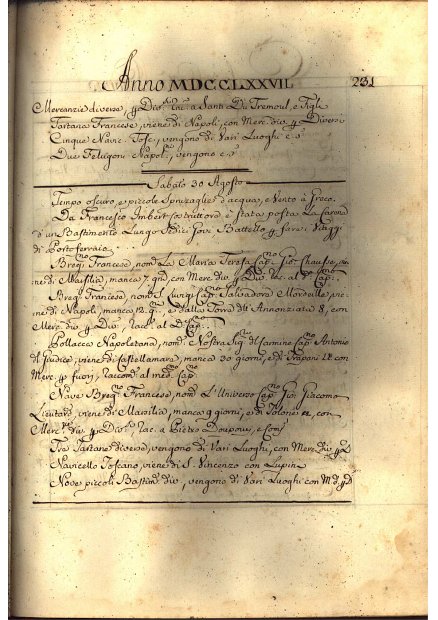 Anno MDCCLXXVII. 231
Mercanzie diverse, p Divsi, rac. a Santi Di Tremoul, e Figli
Tartana Francese, viene di Napoli, con Merc. div. p Diversi
Cinque Navi. Tosc. vengono di Vari Luoghi e s
Due Felugoni Napol. vengono e s
Sabato 30 Agosto
Tempo oscuro, e piccole Spruzaglie d'acqua, e Vento à Greco.
Da Francesco Imbert Costruttore è stata posta La Carena
d'un Bastimento Lungo Piedi Govi Battello p fare Viaggi
di Portoferraio
Breqno Francese, nomo La Maria Teresa Capno Gio: Chausse, vie
ne di Marsilia, manca 7 gni con Merc div p Div rac. al do Capno
Breqno Francese, nomo S. Luigi Capno Salvadore Mordeille, vie
ne di Napoli, manca 12 gi. e dalla Torre dl Annonziata 8, con
Merc. div. p Div. rac. al do Capno
Pollacca Napoletana, nomo Nostra Sigra del Carmine Capno Antonio
di Giudice, viene di Castellamara, manca 30 giorni, e di Trapani 12 con
Merc. p fuori, raccom. al medo Capno
Nave Breqno Francese, nomo L'Universo Capno Gio: Giacomo
Lieutard, viene di Marsilia, manca 9 giorni, e di Tolone con
Merc. div. p Divsi, rac. a Pietro Doupouy, e Comp
Tre Tartane diverse, vengono di Vari Luoghi, con Merc. div. p D
Navicello Toscano, viene di S. Vincenzo con Lupini
Nove piccoli Bastimti div., vengono di Vari Luoghi con M d p D